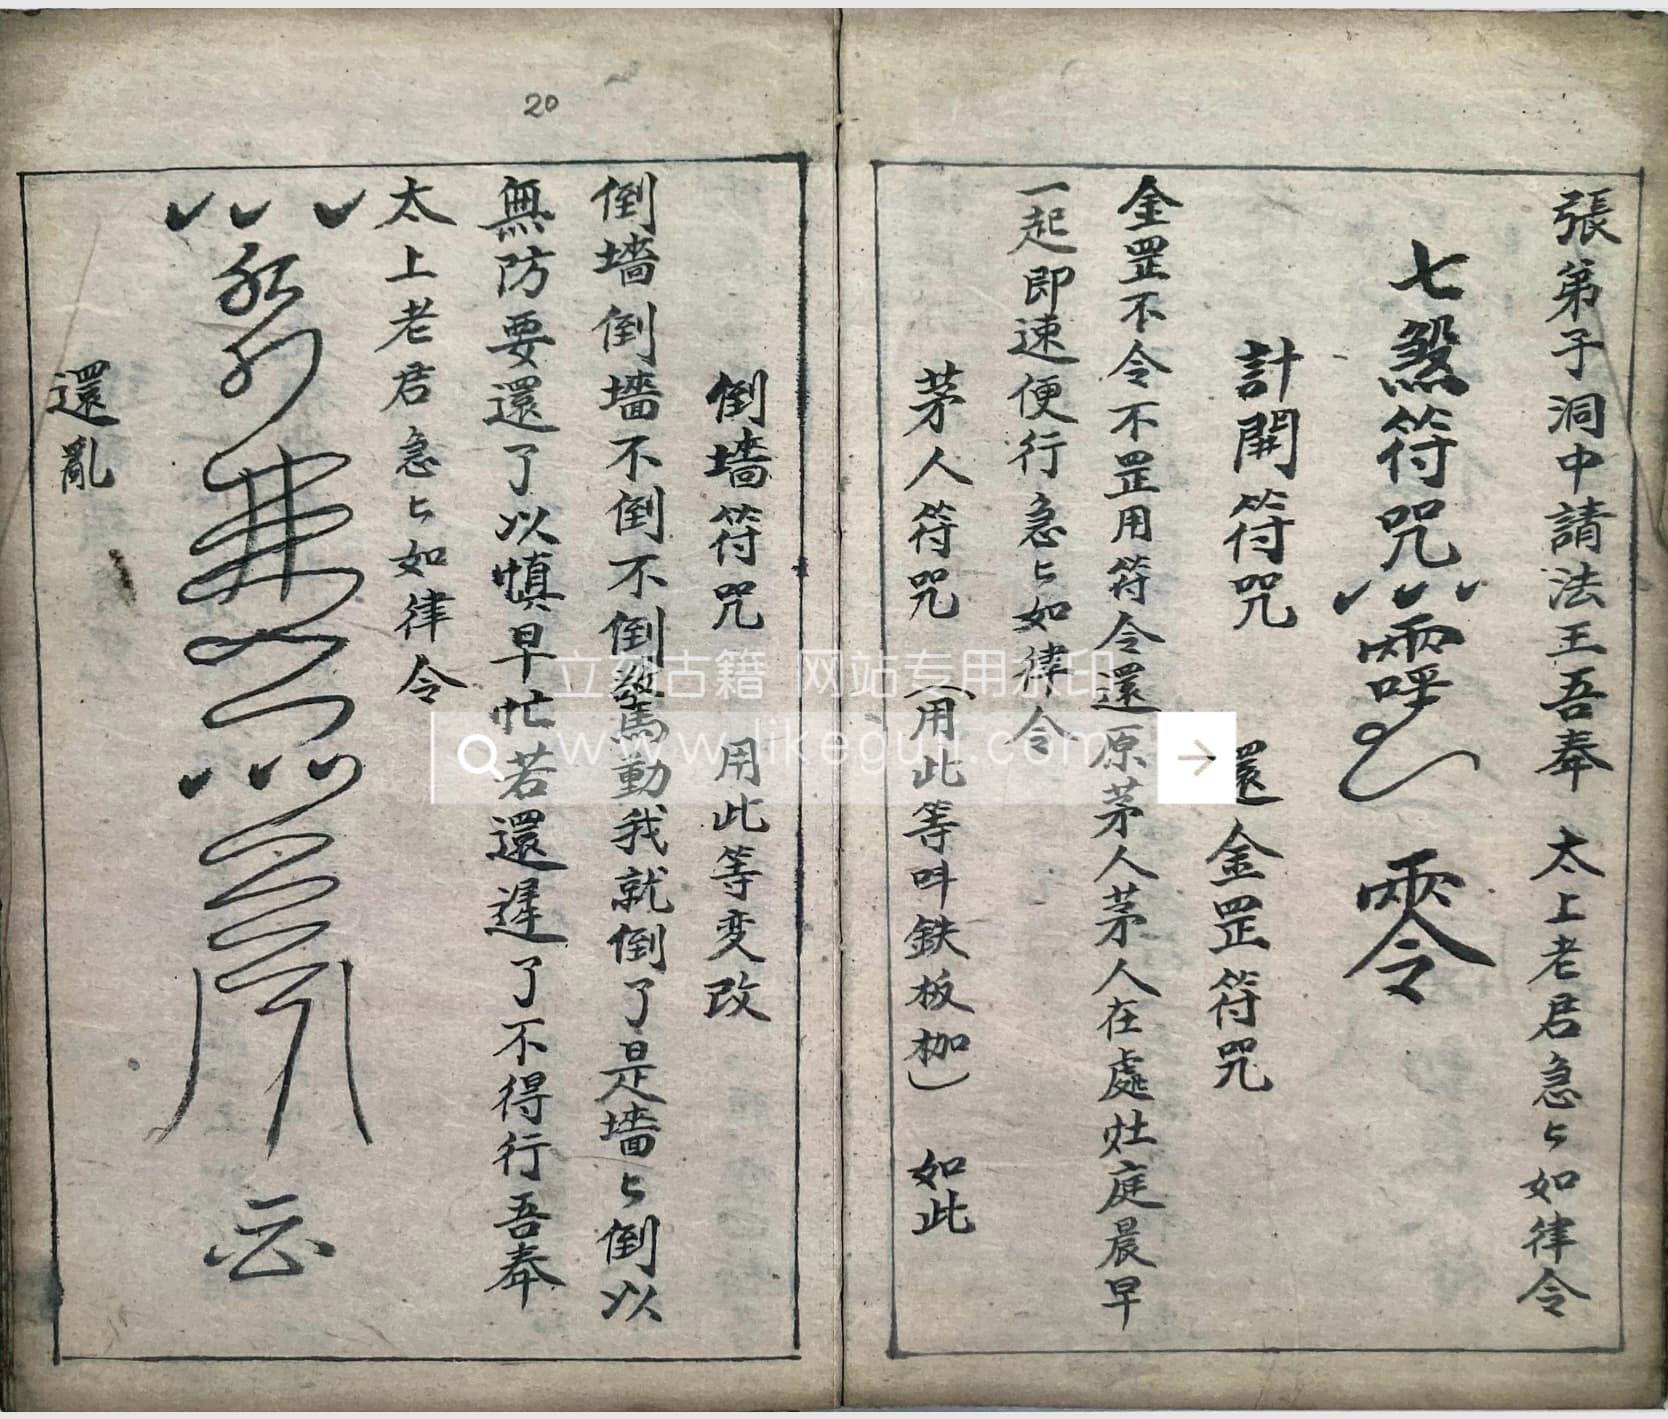 張弟子洞中請法王吾奉　太上老君急㇉如律令
七煞符咒　零
計開符咒　還金罡符咒
金罡不令不罡用符令還原茅人茅人在處灶庭晨早
一起即速便行急㇉如律令
茅人符咒（用此等呌鉄板枷）　如此
20
倒墻符咒　用此等变改
倒墻倒墻不倒不倒驚動我就倒了是墻㇉倒以
無防要還了以慎早忙若還遲了不得行吾奉
太上老君急㇉如律令
還亂
立刻古籍 网站专用水印
www.likeguji.com